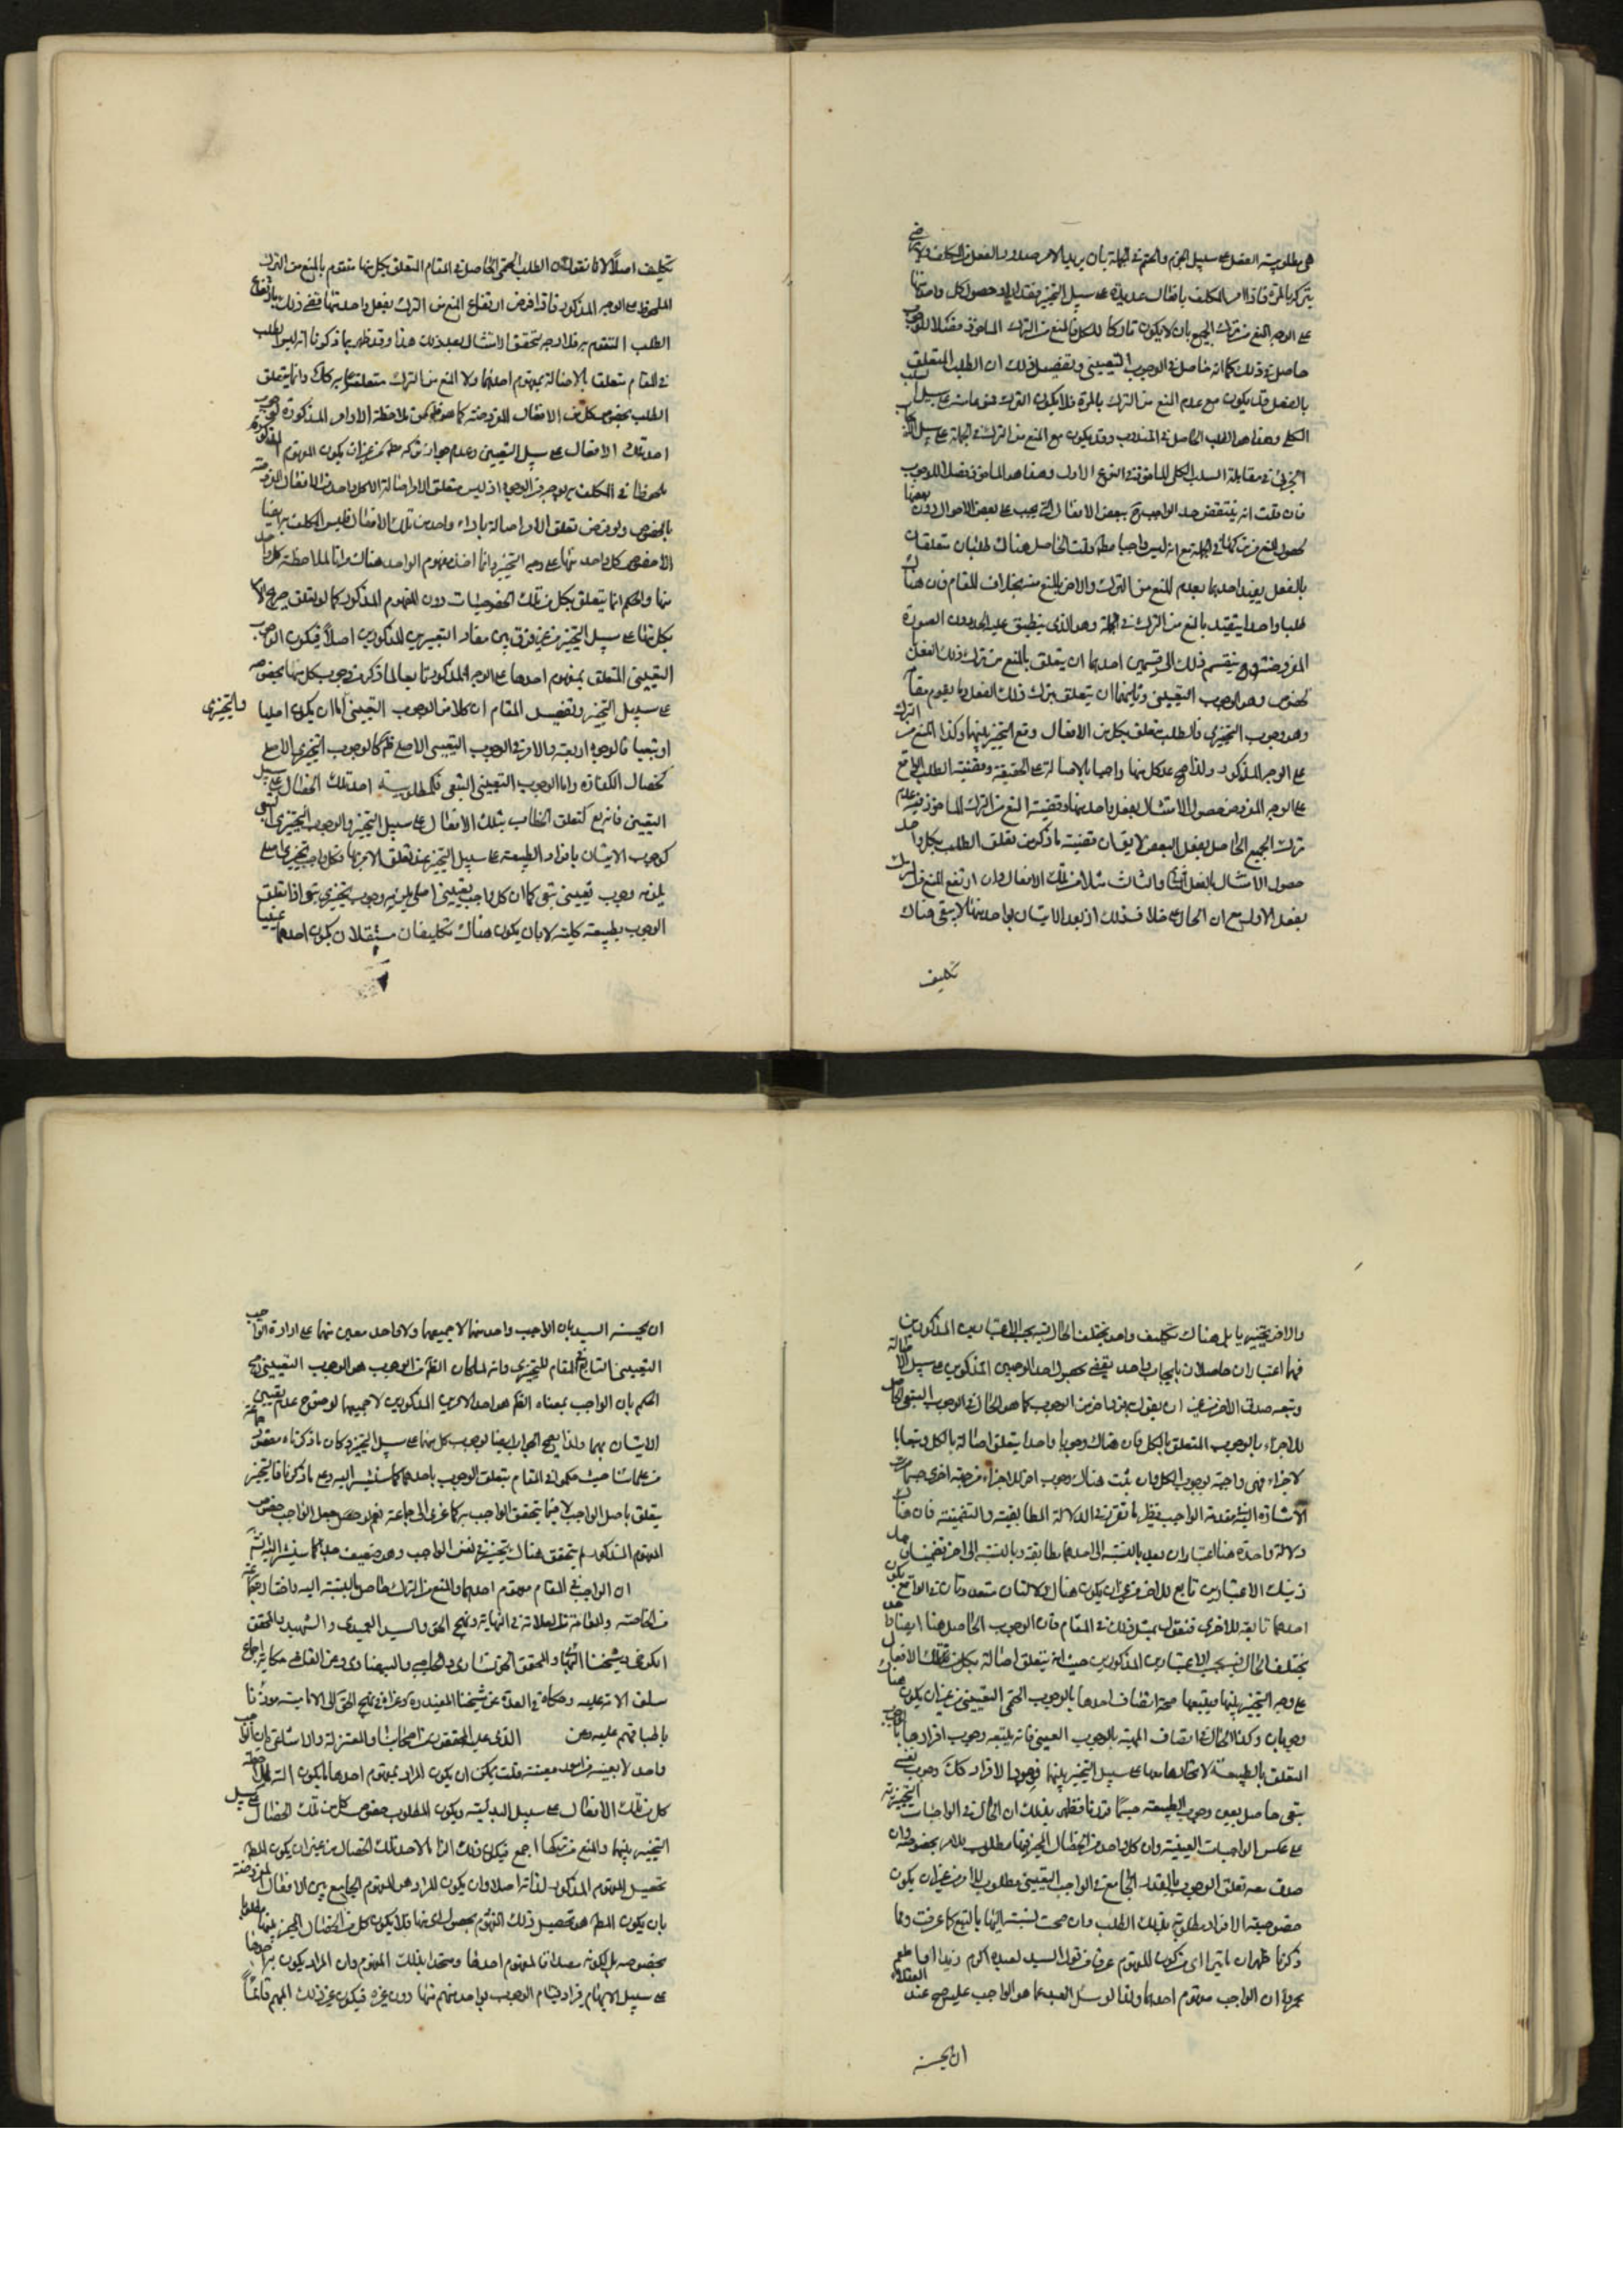 هي مطلوبية الفعل على سبيل الجزم والحتم في الجملة بان يريد الامر صدور الفعل من المكلف ولا يرضى
بتركه بالمرة فاذا امر المكلف بافعال عديدة على سبيل التخيير فقد اراد حصول كل واحد منها
على الوجه المنع من ترك الجميع بان لا يكون تاركا للكل فالمنع من الترك الماخوذ فصلا للوجوب
حاصل في ذلك كما انه حاصل في الوجوب التعييني وتفصيل ذلك ان الطلب المتعلق
بالفعل قد يكون مع عدم المنع من الترك بالمرة فلا يكون الترك ممنوعا منه على سبيل السلب
الكلي وهذا هو الطلب الحاصل في المندوب وقد يكون مع المنع من الترك في الجملة على سبيل الايجاب
الجزئي في مقابلة السلب الكلي الماخوذ في النوع الاول وهذا هو الماخوذ فصلا للوجوب
فان قلت انه ينتقض حد الواجب ح ببعض الافعال التي يجب على بعض الاحوال دون بعضها
لحصول المنع من تركها في الجملة مع انه ليس واجبا مط قلت الحاصل هناك طلبان متعلقان
بالفعل يقيد احدهما بعدم المنع من الترك والاخر بالمنع منه بخلاف المقام فان هناك
طلبا واحدا يتقيد بالمنع من الترك في الجملة وهو الذي ينطبق عليه الحد دون الصورة
المفروضة وح ينقسم ذلك الى قسمين احدهما ان يتعلق بالمنع من ترك ذلك الفعل
بخصوصه وهو الوجوب التعييني وثانيهما ان يتعلق بترك ذلك الفعل وما يقوم مقامه
وهو وجوب التخييري فالطلب متعلق بكل من الافعال وقع التخيير بينها وكذا المنع من الترك
على الوجه المذكور ولذا صح عد كل منها واجبا بالاصالة على الحقيقة وقضية الطلب الواقع
على الوجه المفروض حصول الامتثال بفعل واحد منها وقضية المنع من الترك الماخوذ فيه عدم
ترك الجميع الحاصل بفعل البعض لا يقال قضية ما ذكر من تعلق الطلب بكل واحد
حصول الامتثال بالفعل الثاني والثالث مثلا من تلك الافعال وان ارتفع المنع من الترك
بفعل الاول مع ان الحال على خلاف ذلك اذ بعد الاتيان بواحد منها لا يبقى هناك
تكليف
تكليف اصلا لانا نقول ان الطلب الحتمي الحاصل في المقام المتعلق بكل منها متقوم بالمنع من الترك
الملحوظ على الوجه المذكور فاذا فرض ارتفاع المنع من الترك بفعل واحد منها قضى ذلك بارتفاع
الطلب المتقوم به فلا وجه لتحقق الامتثال بعد ذلك هذا وقد ظهر بما ذكرنا انه ليس الطلب
في المقام متعلقا بالاصالة بمفهوم احدهما ولا المنع من الترك متعلقا به كك وانما يتعلق
الطلب بخصوص كل من الافعال المفروضة كما هو ظ من ملاحظة الاوامر المذكورة نعم وجوب
احد تلك الافعال على سبيل التعيين وعدم جواز تركه مط من غير ان يكون المفهوم المذكور
ملحوظا في المكلف به بوجه من الوجوه اذ ليس متعلق الامر اصالة الا كل واحد من الافعال المفروضة
بالخصوص ولو فرض تعلق الامر اصالة باداء واحد من تلك الافعال فليس المكلف به ايضا
الا خصوص كل واحد منها على وجه التخيير وانما اخذ مفهوم الواحد هناك مراتا لملاحظة كل واحد
منها والحكم انما يتعلق بكل من تلك الخصوصيات دون المفهوم المذكور كما لو تعلق صريح الامر
بكل منها على سبيل التخيير من غير فرق بين مفاد التعبيرين المذكورين اصلا فيكون الوجوب
التعييني المتعلق بمفهوم احدها على الوجه المذكور تابعا لما ذكر من وجوب كل منها بخصوصه
على سبيل التخيير وتفصيل المقام ان كلا من الوجوب التعييني والتخييري اما ان يكون اصليا
او تبعيا فالوجوه اربعة والامر في الوجوب التعييني الاصلي ظ كالوجوب التخييري الاصلي
كخصال الكفارة واما الوجوب التعييني التبعي فكمطلوبية احد تلك الخصال على سبيل
التعيين فانه تابع لتعلق الخطاب بتلك الافعال على سبيل التخيير والوجوب التخييري التبعي
كوجوب الاتيان بافراد الطبيعة على سبيل التخيير عند تعلق الامر بها فكل واجب تخييري اصلي
يلزمه وجوب تعييني تبعي كما ان كل واجب تعييني اصلي يلزمه وجوب تخييري تبعي اذا تعلق
الوجوب بطبيعة كلية لا بان يكون هناك تكليفان مستقلان يكون احدهما عينيا
والاخر تخييريا بل هناك تكليف واحد يختلف الحال فيه بحسب الاعتبارين المذكورين
فهما اعتباران حاصلان بايجاب واحد يقضي بحصول احد الوجهين المذكورين على سبيل الاصالة
ويتبعه صدق الاخر من غير ان يقول بجزء اخر من الوجوب كما هو الحال في الوجوب التبعي الحاصل
للاجزاء بالوجوب المتعلق بالكل فان هناك وجوبا واحدا يتعلق اصالة بالكل وتبعا بالاجزاء
لاجزاء فهي واجبة بوجوب الكل وان ثبت هناك وجوب اخر للاجزاء من جهة اخرى حسبما مرت
الاشارة اليه في مقدمة الواجب ونظير ما تقرر في الدلالة المطابقية والتضمنية فان هناك
دلالة واحدة هنا اعتباران يعد بالنسبة الى احدهما مطابقة وبالنسبة الى اخر تضمنا
ذينك الاعتبارين تابع للاخر من غير ان يكون هناك دلالتان متعددتان في الواقع يكون
احدهما تابعة للاخرى فنقول بمثل ذلك في المقام فان الوجوب الحاصل هنا ايضا واحد
يختلف الحال فيه بحسب الاعتبارين المذكورين حيث انه يتعلق اصالة بكل من تلك الافعال
على وجه التخيير بينها ويتبعها صحة اتصاف احدها بالوجوب الحتمي التعييني من غير ان يكون هناك
وجوبان وكذا الحال في اتصاف المهية بالوجوب العيني فانه يتبعه وجوب افرادها بالوجوب
المتعلق بالطبيعة لاتحادها معها على سبيل التخيير بينها فوجوب الافراد كك وجوب نفسي
تبعي حاصل بعين وجوب الطبيعة حسبما قررنا فظهر بذلك ان الحال في الواجبات التخييرية
على عكس الواجبات العينية وان كل واحد من الخصال المخير فيها مطلوب للامر بخصوصه وان
صدق معه تعلق الوجوب بالقدر الجامع في الواجب التعييني مطلوب للامر من غير ان يكون
خصوصية الافراد مطلوبة بذلك الطلب وان صحت نسبته اليها بالتبع كما عرفت ومما
ذكرنا ظهر ان ما يتراءى من كون المفهوم عرفا من قول السيد لعبده اكرم زيدا او اطعم
عمروا ان الواجب مفهوم احدهما ولذا لو سئل العبد عما هو الواجب عليه صح عند العقلاء
ان يجيبه
ان يجيبه السيد بان الواجب واحد منهما لا جميعهما ولا واحد معين منهما على ارادة الواجب
التعييني التابع في المقام للتخييري وانه لما كان الظ من الوجوب هو الوجوب التعييني صح
الحكم بان الواجب بمعناه الظ هو احد الامرين المذكورين لا جميعهما لوضوح عدم تعيين
الاتيان بهما ولذا يصح الجواب ايضا بوجوب كل منهما على سبيل التخيير وكان ما ذكرناه مقصود جماعة
من علمائنا حيث حكموا في المقام بتعلق الوجوب باحدهما كما سنشير اليه ومع ما ذكرنا فالتخيير
يتعلق باصل الواجب لا فيما يتحقق الواجب به كما عزى الى جماعة نعم لو جعل الواجب خصوص
المفهوم المذكور لم يتحقق هناك تخيير في نفس الواجب وهو ضعيف جدا كما سنشير اليه ثم
ان الواجب في المقام مفهوم احدهما والمنع من الترك حاصل بالنسبة اليه واختاره جماعة
من الخاصة والعامة منهم العلامة في النهاية ونهج الحق والسيد العميدي والشهيد والمحقق
الكركي وشيخنا البهائي والمحقق الخونساري والحاجبي والبيضاوي وعن القاضي حكاية اجماع
سلف الامة عليه وحكاه في العدة عن شيخنا المفيد ره وعزاه في نهج الحق الى الامامية موذنا
باطباقهم عليه وعن الذي عليه المحققون من اصحابنا والمعتزلة والاشاعرة ان الواجب
واحد لا بعينه من امور معينة قلت يمكن ان يكون المراد بمفهوم احدها ما يكون
كل من تلك الافعال على سبيل البدلية ويكون المطلوب خصوص كل من تلك الخصال على سبيل
التخيير بينها والمنع من تركها اجمع فيكون ذلك الزاما لاحد تلك الخصال من غير ان يكون المط
تحصيل المفهوم المذكور لذاته اصلا وان يكون المراد هو المفهوم الجامع بين الافعال المفروضة
بان يكون المط هو تحصيل ذلك المفهوم بحصول اي منها فلا يكون كل من الخصال المخير بينها مطلوبا
بخصوصه بل لكونه مصداقا لمفهوم احدها ومتحدا بذلك المفهوم وان المراد يكون به احدها
على سبيل الابهام فراد قيام الوجوب بواحد منهم منها دون غيره فيكون غير ذلك المبهم قائما